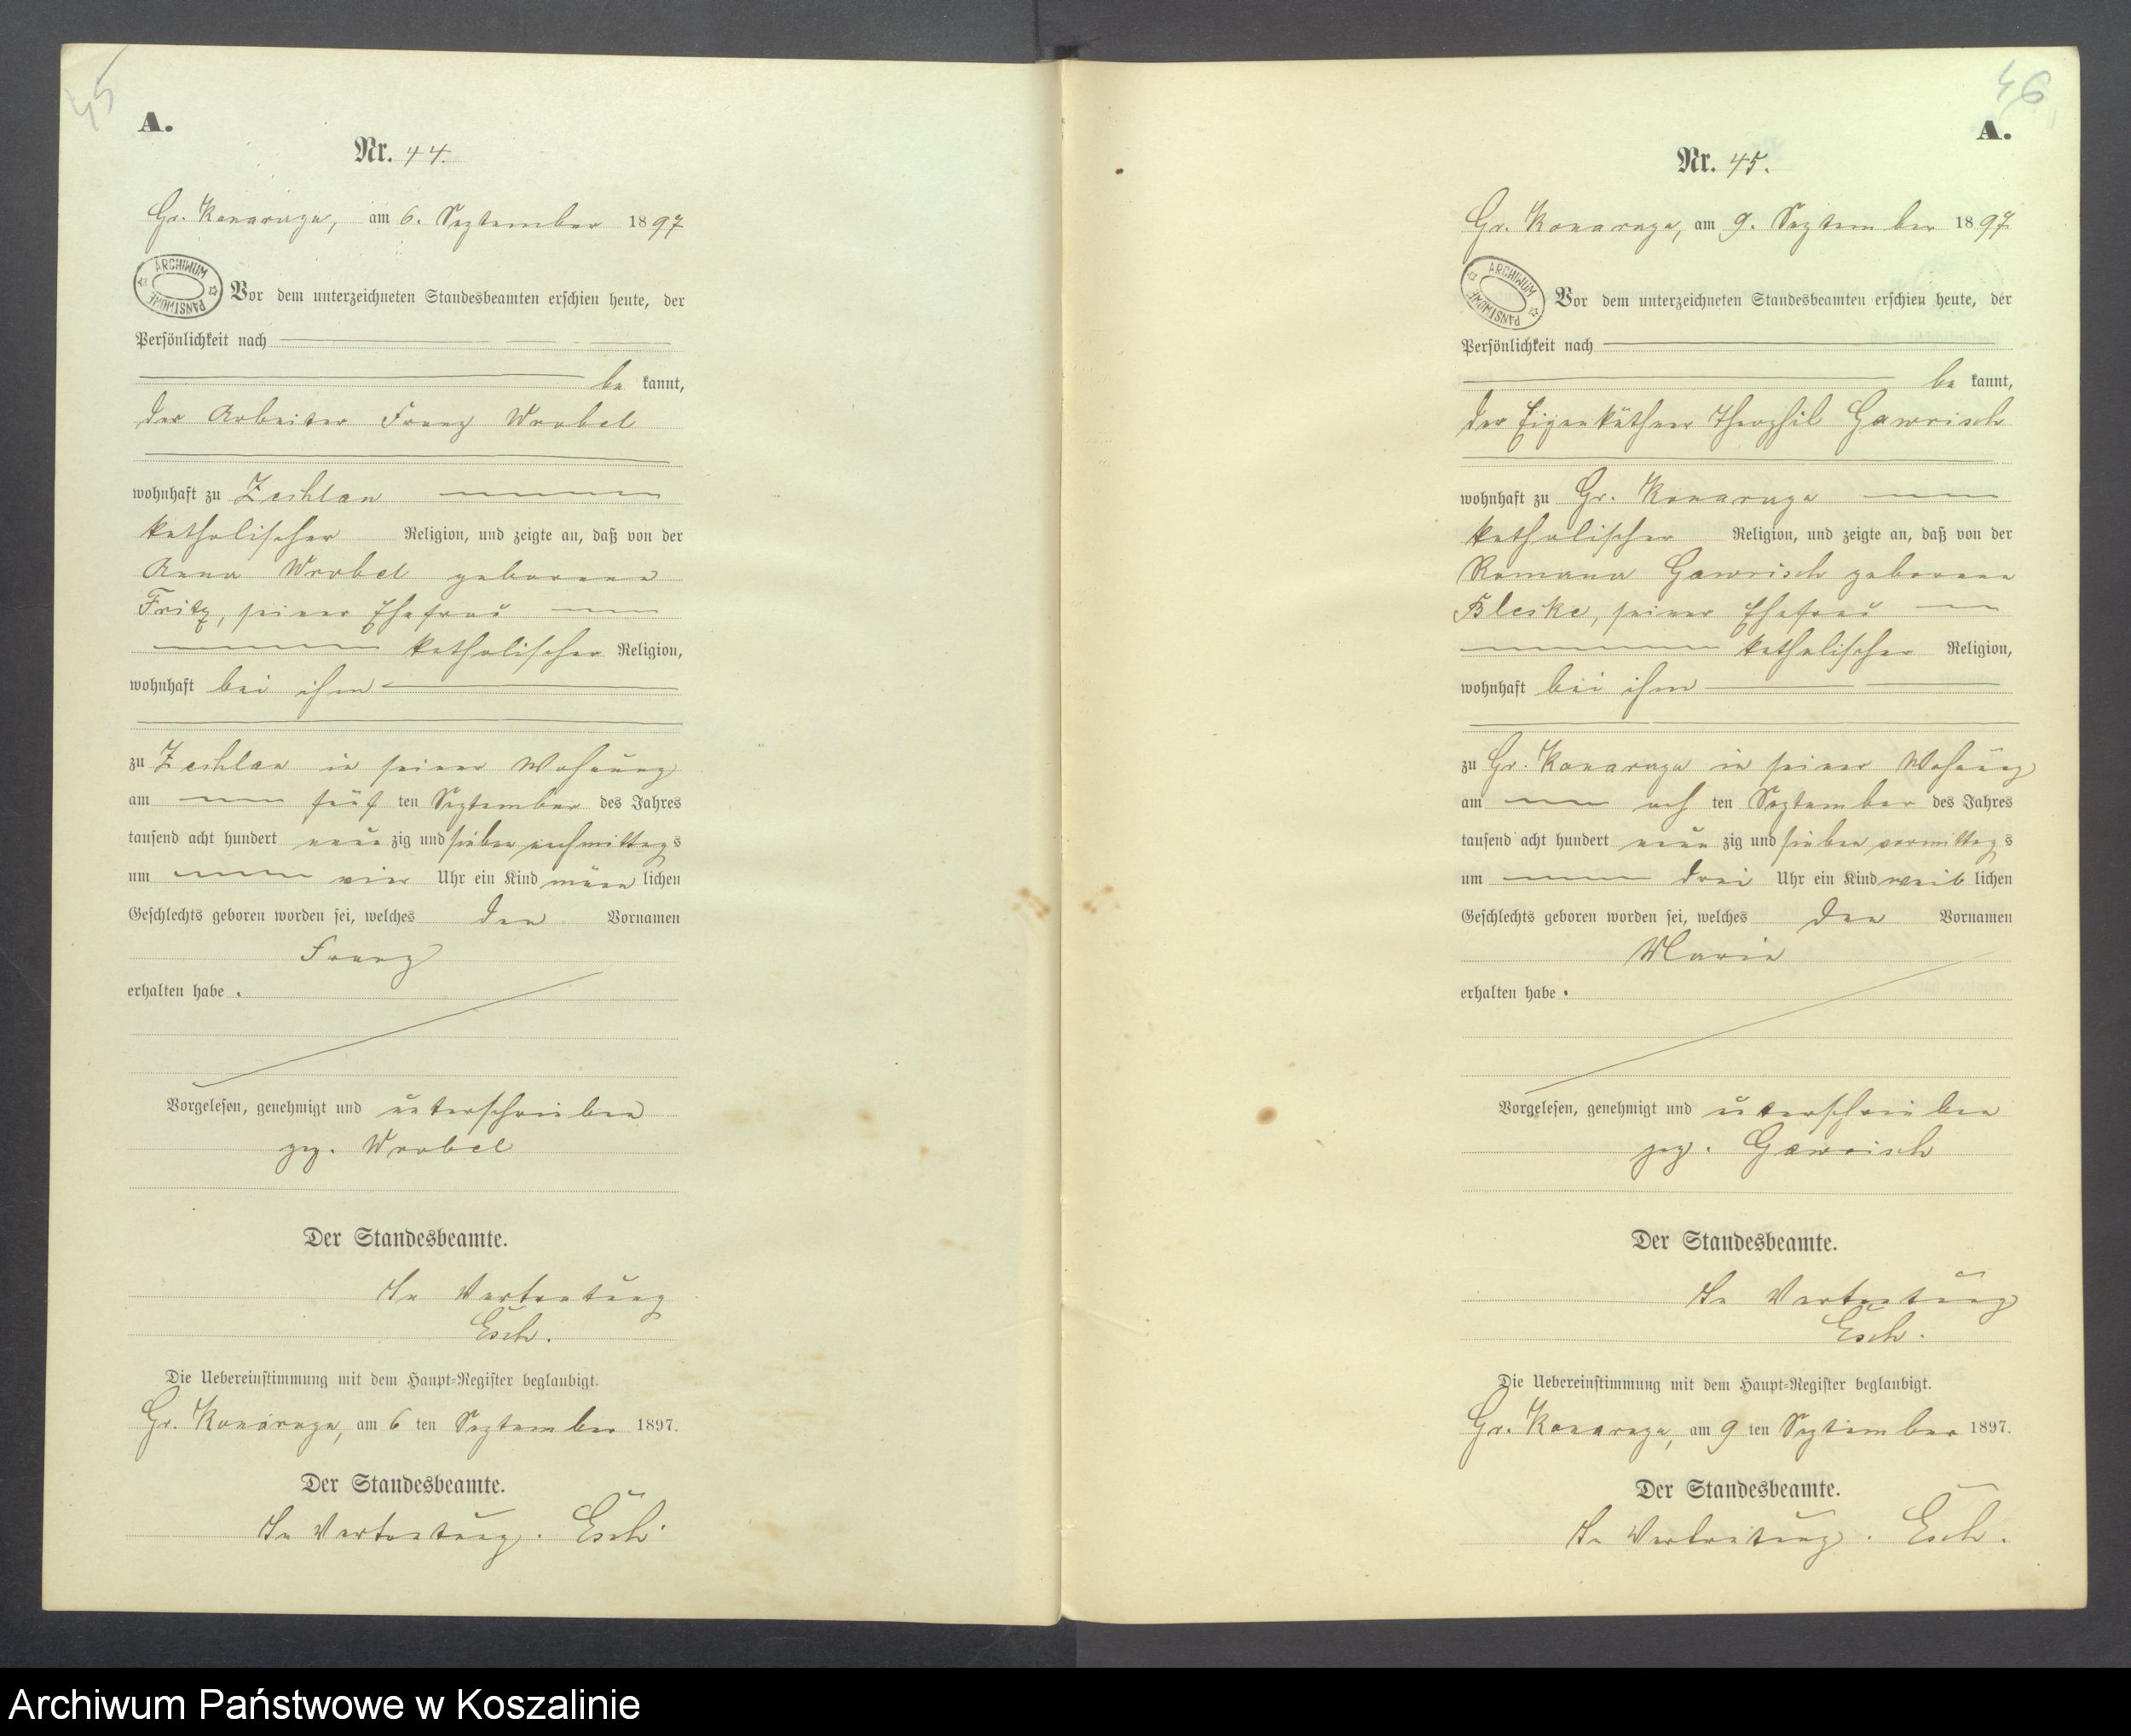 45
A.
Nr. 44.
Gr. Konarzyn, am 6. September 1897
ARCHIWUM PAŃSTWOWE
Vor dem unterzeichneten Standesbeamten erschien heute, der
Persönlichkeit nach
be kannt,
der Arbeiter Franz Wrobel
wohnhaft zu Zechlau
katholischer Religion, und zeigte an, daß von der
Anna Wrobel geborene
Fritz, seiner Ehefrau
katholischer Religion,
wohnhaft bei ihm
zu Zechlau in seiner Wohnung
am fünf ten September des Jahres
tausend acht hundert neun zig und sieben nachmittags
um vier Uhr ein Kind männ lichen
Geschlechts geboren worden sei, welches den Vornamen
Franz
erhalten habe.
Vorgelesen, genehmigt und unterschrieben
gez. Wrobel
Der Standesbeamte.
In Vertretung
Esch.
Die Uebereinstimmung mit dem Haupt-Register beglaubigt.
Gr. Konarzyn, am 6 ten September 1897.
Der Standesbeamte.
In Vertretung. Esch.
46
A.
Nr. 45.
Gr. Konarzyn, am 9. September 1897
ARCHIWUM PAŃSTWOWE
Vor dem unterzeichneten Standesbeamten erschien heute, der
Persönlichkeit nach
be kannt,
der Eigenkäthner Theophil Gawrisch
wohnhaft zu Gr. Konarzyn
katholischer Religion, und zeigte an, daß von der
Romana Gawrisch geborene
Bleske, seiner Ehefrau
katholischer Religion,
wohnhaft bei ihm
zu Gr. Konarzyn in seiner Wohnung
am ach ten September des Jahres
tausend acht hundert neun zig und sieben vormittags
um drei Uhr ein Kind weib lichen
Geschlechts geboren worden sei, welches den Vornamen
Marie
erhalten habe.
Vorgelesen, genehmigt und unterschrieben
gez. Gawrisch
Der Standesbeamte.
In Vertretung
Esch.
Die Uebereinstimmung mit dem Haupt-Register beglaubigt.
Gr. Konarzyn, am 9 ten September 1897.
Der Standesbeamte.
In Vertretung. Esch.
Archiwum Państwowe w Koszalinie